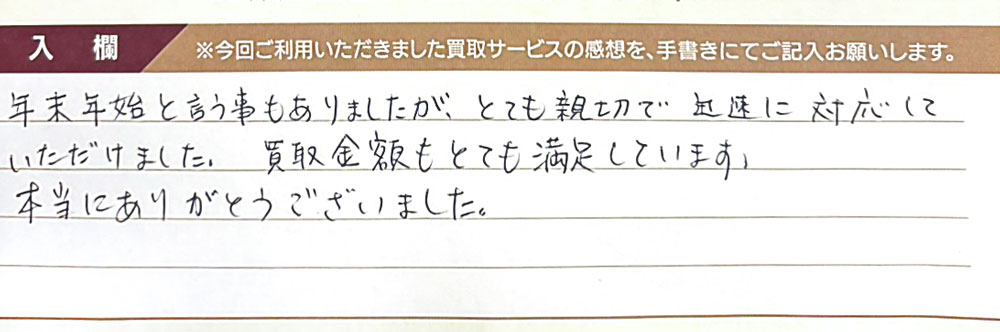 入 欄 ※今回ご利用いただきました買取サービスの感想を、手書きにてご記入お願いします。
年末年始と言う事もありましたが、とても親切で 迅速に 対応して
いただけました。 買取金額もとても満足しています。
本当にありがとうございました。